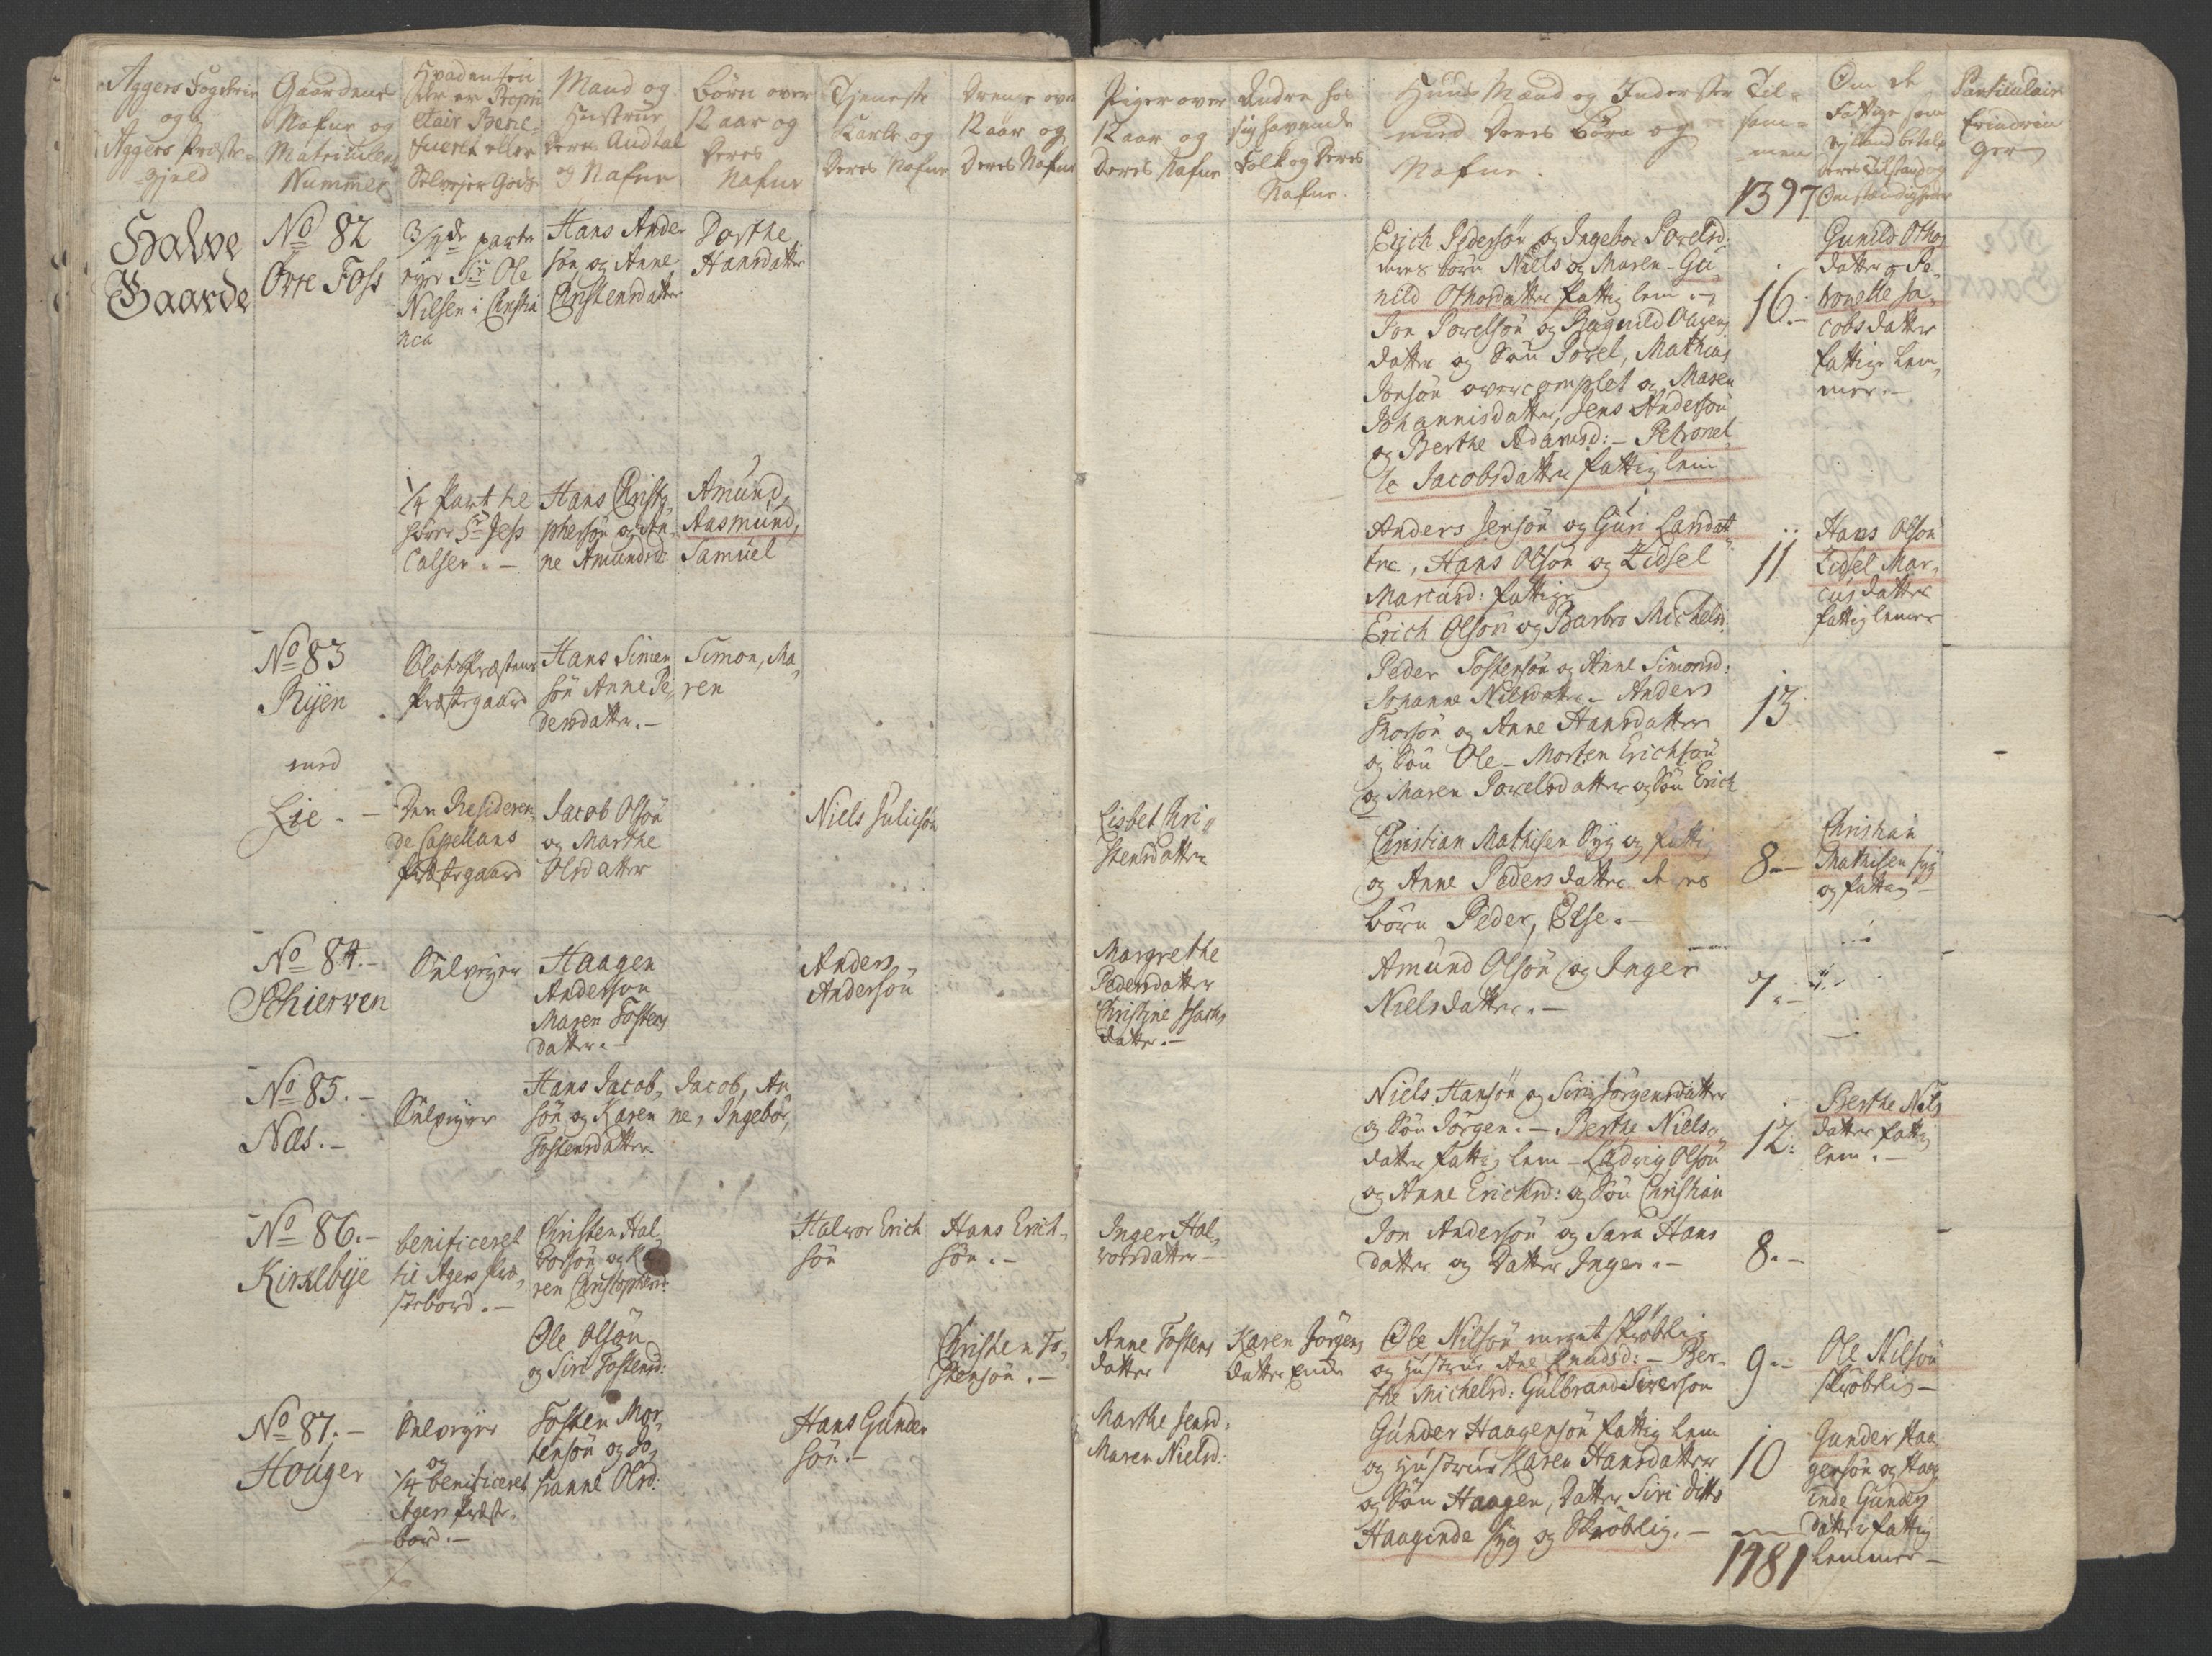 Aggers Fogderie
og
Aggers Præste-
gield
Gaardens
Nafne og
Matriculens
Nummer
Hvadenten
der er Propri
etair Bene-
ficeret eller
Selvejer Gods
Mand og
Hustrue
Deres Andtal
og Nafne
Børn over
12 aar og
Deres
Nafne
Tjeneste
Karle og
Deres Nafne
Drenge over
12 aar og
Deres Nafne
Piger over
12 aar og
Deres Nafne
Andre hos
sig havende
Folk og Deres
Nafne.
Huus Mænd og Inderster
med Deres Børn og
Nafne.
Til-
sam-
men
1397
Om de
Fattige som
ej kand betale
deres Tilstand og
Omstændigheder
Particulaire
Erindrin
ger
Halve
Gaarde
No 82
Orre Foss
3/4de parte
ejer Sr Ole
Nilsen i Christia
nia
Hans Ander
søn og Anne
Christensdatter
Dorthe
Hansdatter
Erich Pedersøn og Ingebor Povelsd:
deres børn Niels og Maren - Gu-
nild Othosdatter fattig lem -
Jon Povelsøn og Bagnild Olufens
datter og Søn Povel, Mathias
Jonsøn overcomplet og Maren
Johannisdatter, Jens Andersøn
og Berthe Adamsd: - Petronel
le Jacobsdatter fattig lem
16.-
Gunild Othos
datter og Pe-
tronelle Ja-
cobsdatter
fattige lem-
mer.-
1/4 Part til
hører Sr Jess
Colsen.-
Hans Christo
phersøn og An-
ne Amundsd:
Amund,
Aasmund,
Samuel
Anders Jensøn og Guri Larsdat
tre, Hans Olsøn og Zidsel
Marcusd: fattige
Erich Olsøn og Barbro Michelsd:
11
Hans Olsøn
Zidsel Mar-
cusdatter
fattig lemer
No 83
Ryen
Slotspræstens
Præstegaard
Hans Simen
søn Anne Pe
dersdatter.-
Simon, Ma-
ren
Peder Tostensøn og Anne Simonsd:
Johanne Nielsdatter - Anders
Thorsøn og Anne Hansdatter
og Søn Ole - Morten Erichsøn
og Maren Povelsdatter og Søn Erich
13
med
Lie.-
Den Residéren-
de Capellans
Præstegaard
Jacob Olsøn
og Marthe
Olsdatter
Niels Julicsøn
Lisbet Chri-
stensdatter
Christian Mathisen Syg og fattig
og Anne Pedersdatter deres
børn Peder, Else.-
8.-
Christian
Mathisen syg
og fattig -
No 84.-
Schierven
Selvejer
Haagen
Andersøn
Maren Tostens
datter.-
Anders
Andersøn
Margrethe
Pedersdatter
Christine Isachs
datter.-
Amund Olsøn og Inger
Nielsdatter.-
7.-
No 85.-
Næs.-
Selvejer
Hans Jacob-
søn og Karen
Tostensdatter
Jacob, An
ne, Ingebor,
Niels Hansøn og Siri Jörgensdatter
og Søn Jörgen.- Berthe Niels
datter fattig lem - Ludvig Olsøn
og Anne Erichsd: og Søn Christian
12.
Berthe Nils
datter fattig
lem.-
No 86.-
Kirkebye
benificeret
til Agers Præ-
stebord.-
Christen Hal
vorsøn og Ka
ren Christophersd:
Halvor Erich
søn
Hans Erich-
søn.-
Inger Hal-
vorsdatter -
Jon Andersøn og Sara Hans
datter og Datter Inger.-
8.-
Ole Olsøn
og Siri Tostensd:
Christen To-
stensøn.-
Anne Tostens
datter
Karen Jörgens
datter Enke
Ole Nilsøn meget skrøbelig
og Hustrue Ane Knudsd: - Ber-
the Michelsd: Gulbrand Siversøn
9.-
Ole Nilsøn
skrøbelig -
No 87.-
Houger
Selvejer
og
1/4 benificeret
Agers Præste-
bord.-
Tosten Mor-
tensøn og Jo-
hanne Olsd:
Hans Gunder
søn.-
Marthe Jensd:
Maren Nielsd:
Gunder Haagensøn fattig lem
og Hustrue Karen Hansdatter
og Søn Haagen, Datter Siri ditto
Haaginde syg og Skrøbelig.-
10
Gunder Haa
gensøn og Haag
inde Gunders
datter fattig
lemmer -
1481